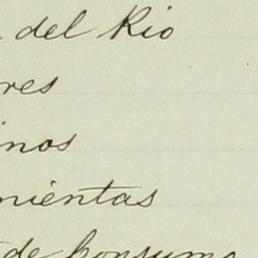 del Rio
res
inos
mientas
de consumo